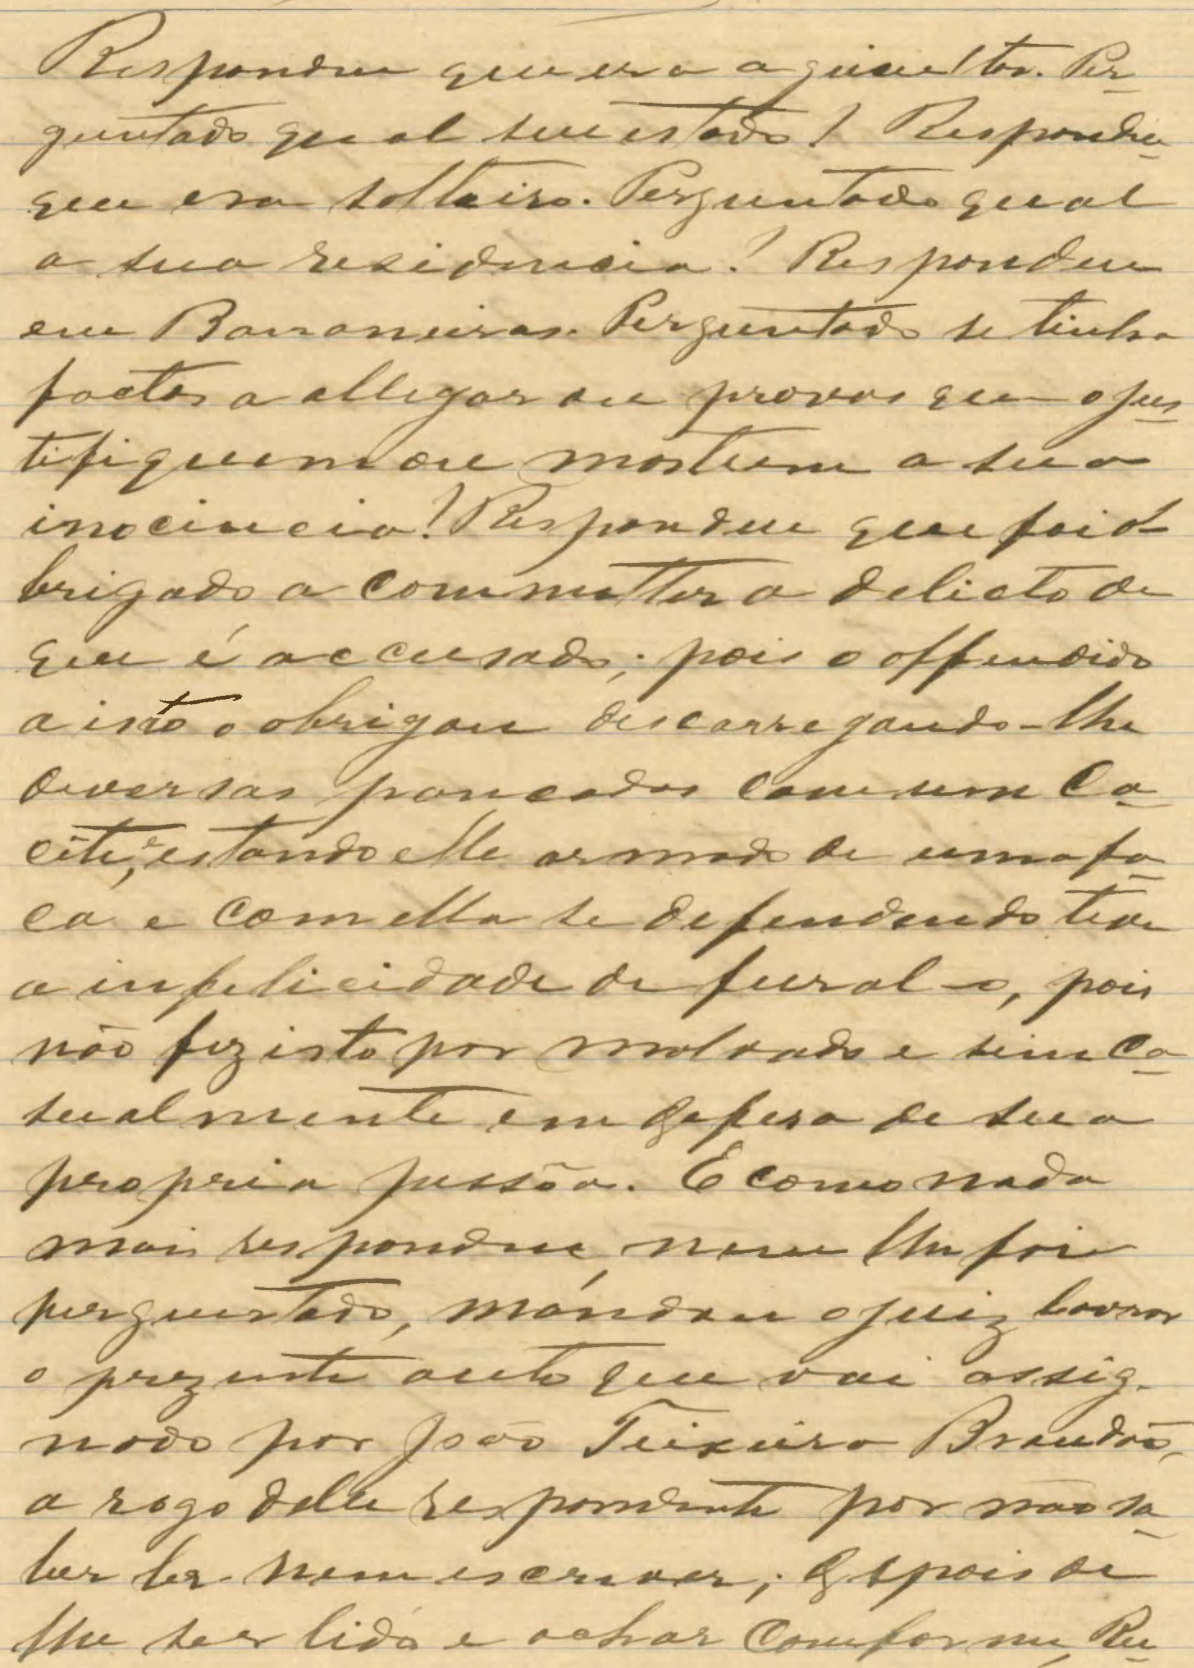 Respondeu que era agricultor. Per-
guntado qual seu estado? Respondeu
que era solteiro. Perguntado qual
a sua residencia? Respondeu
em Bananeiras. Perguntado se tinha
factos a allegar ou provas que o jus-
tifiquem ou mostrem a sua
inocencia? Respondeu que foi o-
brigado a commetter o delicto de
que é accusado; pois o offendido
a isto o obrigou descarregando-lhe
diversas pancadas com um ca-
cête, e estando elle armado de uma fa-
ca e com ella se defendendo teve
a infelicidade de fural-o, pois
não fez isto por malvado e sim ca-
sualmente em defesa de sua
propria pessôa. E como nada
mais respondeu, nem lhe foi
perguntado, mandou o juiz lavrar
o prezente auto que vai assig-
nado por João Teixeira Brandão,
a rogo delle respondente por não sa-
ber ler nem escrever; depois de
lhe ser lido e achar conforme, Ru-